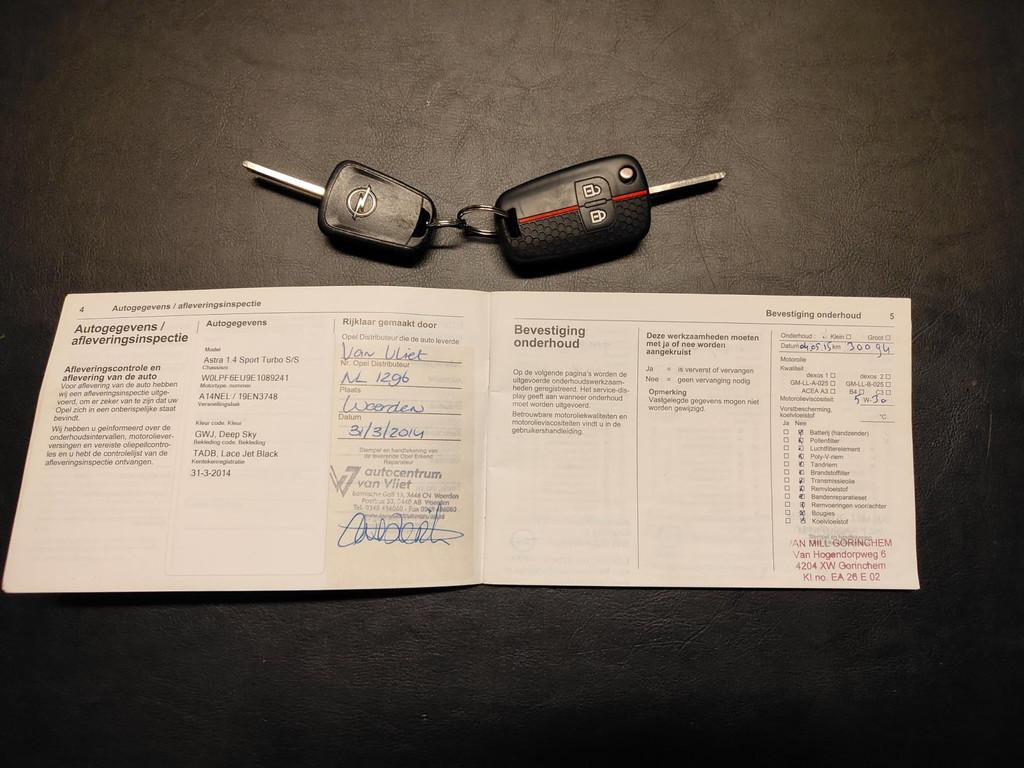 4 Autogegevens / afleveringsinspectie
Autogegevens /
afleveringsinspectie
Afleveringscontrole en
aflevering van de auto
Voor aflevering van de auto hebben
wij een afleveringsinspectie uitge-
voerd, om er zeker van te zijn dat uw
Opel zich in een onberispelijke staat
bevindt.
Wij hebben u geïnformeerd over de
onderhoudsintervallen, motoroliever-
versingen en vereiste oliepeilcontro-
les en u hebt de controlelijst van de
afleveringsinspectie ontvangen.
Autogegevens
Model
Astra 1.4 Sport Turbo S/S
Chassisnr.
W0LPF6EU9E1089241
Motortype, nummer
A14NEL / 19EN3748
Versnellingsbak
Kleur code, Kleur
GWJ, Deep Sky
Bekleding code, Bekleding
TADB, Lace Jet Black
Kentekenregistratie
31-3-2014
Rijklaar gemaakt door
Opel Distributeur die de auto leverde
Van Vliet
Nr. Opel Distributeur
NL 1296
Plaats
Woerden
Datum
31/3/2014
Stempel en handtekening van
de leverende Opel Erkend
Reparateur
autocentrum
van Vliet
3446 CN Woerden
Bevestiging onderhoud 5
Bevestiging
onderhoud
Op de volgende pagina's worden de
uitgevoerde onderhoudswerkzaam-
heden geregistreerd. Het service-dis-
play geeft aan wanneer onderhoud
moet worden uitgevoerd.
Betrouwbare motoroliekwaliteiten en
motorolieviscositeiten vindt u in de
gebruikershandleiding.
Deze werkzaamheden moeten
met ja of nee worden
aangekruist
Ja = is ververst of vervangen
Nee = geen vervanging nodig
Opmerking
Vastgelegde gegevens mogen niet
worden gewijzigd.
Onderhoud: Klein Groot
Datum 04.05.15 km 30094
Motorolie
Kwaliteit
dexos 1 dexos 2
GM-LL-A-025 GM-LL-B-025
ACEA A3
Motorolieviscositeit 5W30
Vorstbescherming,
koelvloeistof °C
Ja Nee
Batterij (handzender)
Pollenfilter
Luchtfilterelement
Poly-V-riem
Tandriem
Brandstoffilter
Transmissieolie
Remvloeistof
Bandenreparatieset
Remvoeringen voor/achter
Bougies
Koelvloeistof
VAN MILL GORINCHEM
Van Hogendorpweg 6
4204 XW Gorinchem
KI no. EA 26 E 02